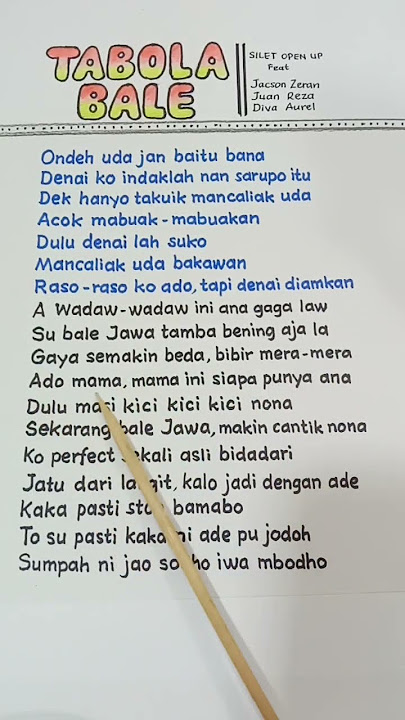 TABOLA
BALE
SILET OPEN UP
Feat
Jacson Zeran
Juan Reza
Diva Aurel
Ondeh uda jan baitu bana
Denai ko indaklah nan sarupo itu
Dek hanyo takuik mancaliak uda
Acok mabuak-mabuakan
Dulu denai lah suko
Mancaliak uda bakawan
Raso-raso ko ado, tapi denai diamkan
A wadaw-wadaw ini ana gaga law
Su bale Jawa tamba bening aja la
Gaya semakin beda, bibir mera-mera
Ado mama, mama ini siapa punya ana
Dulu masi kici kici kici nona
Sekarang bale Jawa, makin cantik nona
Ko perfect sekali asli bidadari
Jatu dari langit, kalo jadi dengan ade
Kaka pasti stop bamabo
To su pasti kaka ni ade pu jodoh
Sumpah ni jao so iwa mbodho